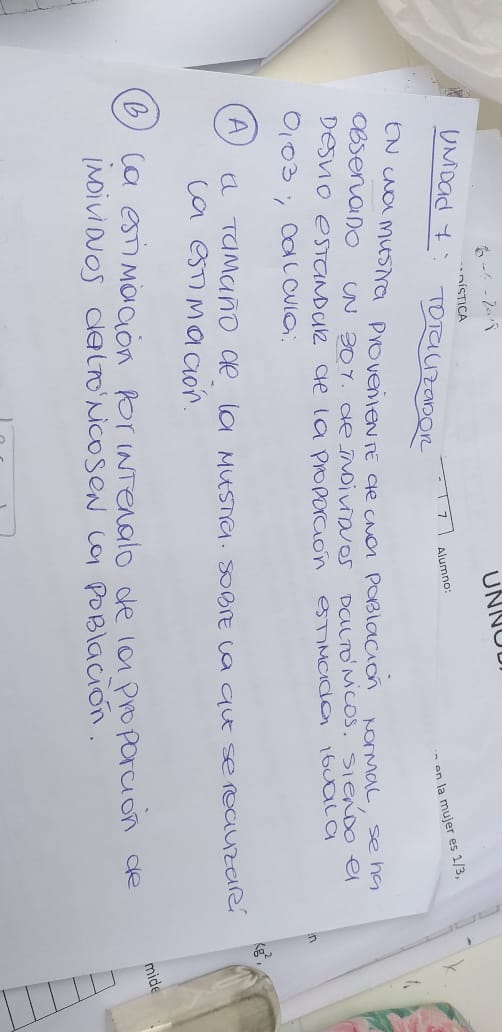 UNIDAD 7: TOTALIZADOR
EN UNA MUSTRA PROVENIENTE de una POBLACIÓN NORMAL, se ha
OBSERVADO UN 30%. de INDIVIDUOS DALTÓNICOS. SIENDO el
DESVIO ESTANDAR de la PROPORCIÓN ESTIMADA IGUAL a
0,03; CALCULA:
(A) el TAMAÑO DE LA MUSTRA. SOBRE LA QUE SE REALIZARÁ
LA ESTIMACIÓN.
(B) la ESTIMACIÓN POR INTERVALO de la PROPORCIÓN de
INDIVIDUOS DALTÓNICOS EN la POBLACIÓN.
7 Alumno:
en la mujer es 1/3,
kg²,
mide